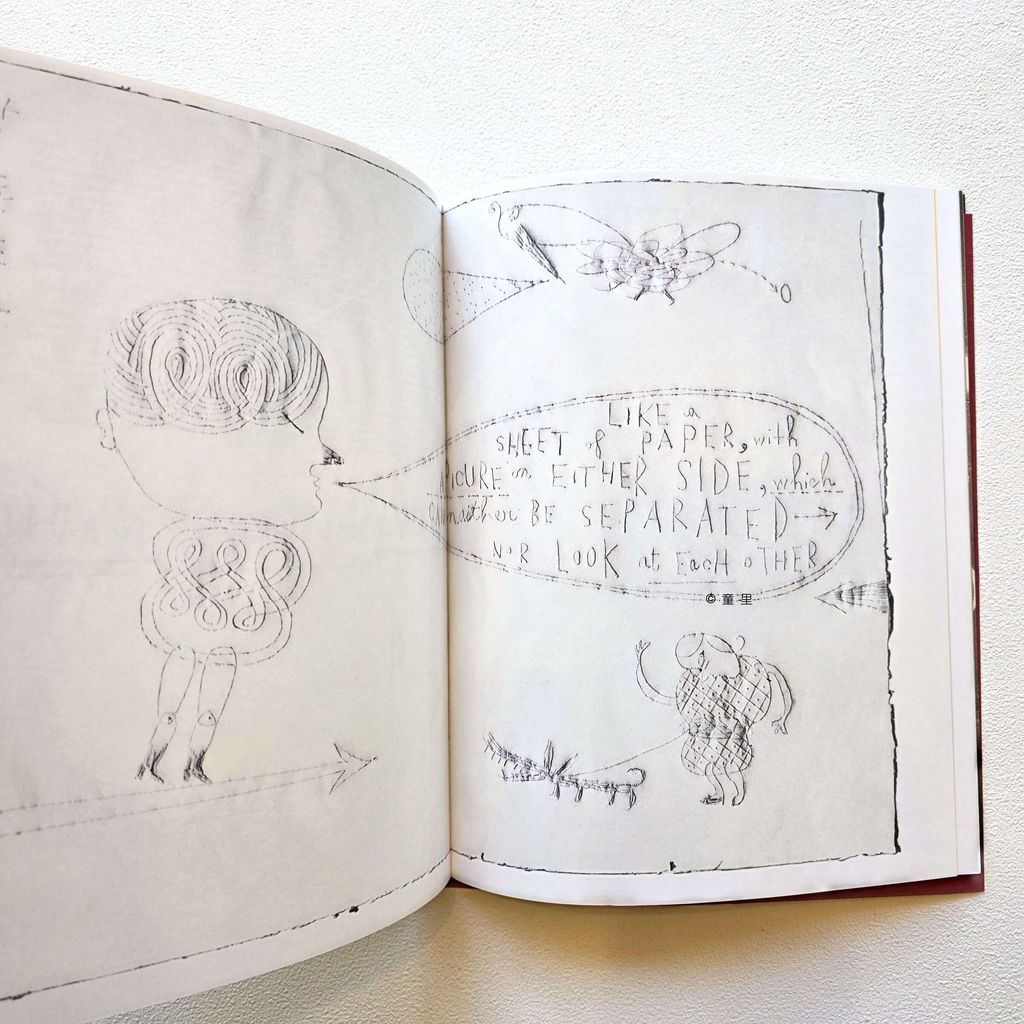 LIKE a
SHEET of PAPER, with
PICURE in EITHER SIDE, which
CAN naither BE SEPARATED
NOR LOOK at EacH oTHER
© 童里